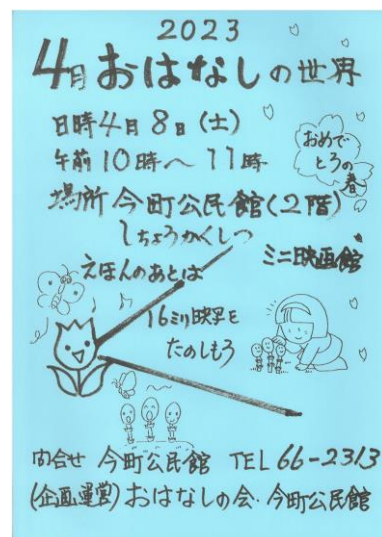 2023
4月おはなしの世界
日時4月8日(土)
午前10時〜11時
おめで
とうの
春
場所 今町公民館(2階)
しちょうかくしつ
えほんのあとは
ミニ映画館
16ミリ映写を
たのしもう
問合せ 今町公民館 TEL 66-2313
(企画運営)おはなしの会・今町公民館